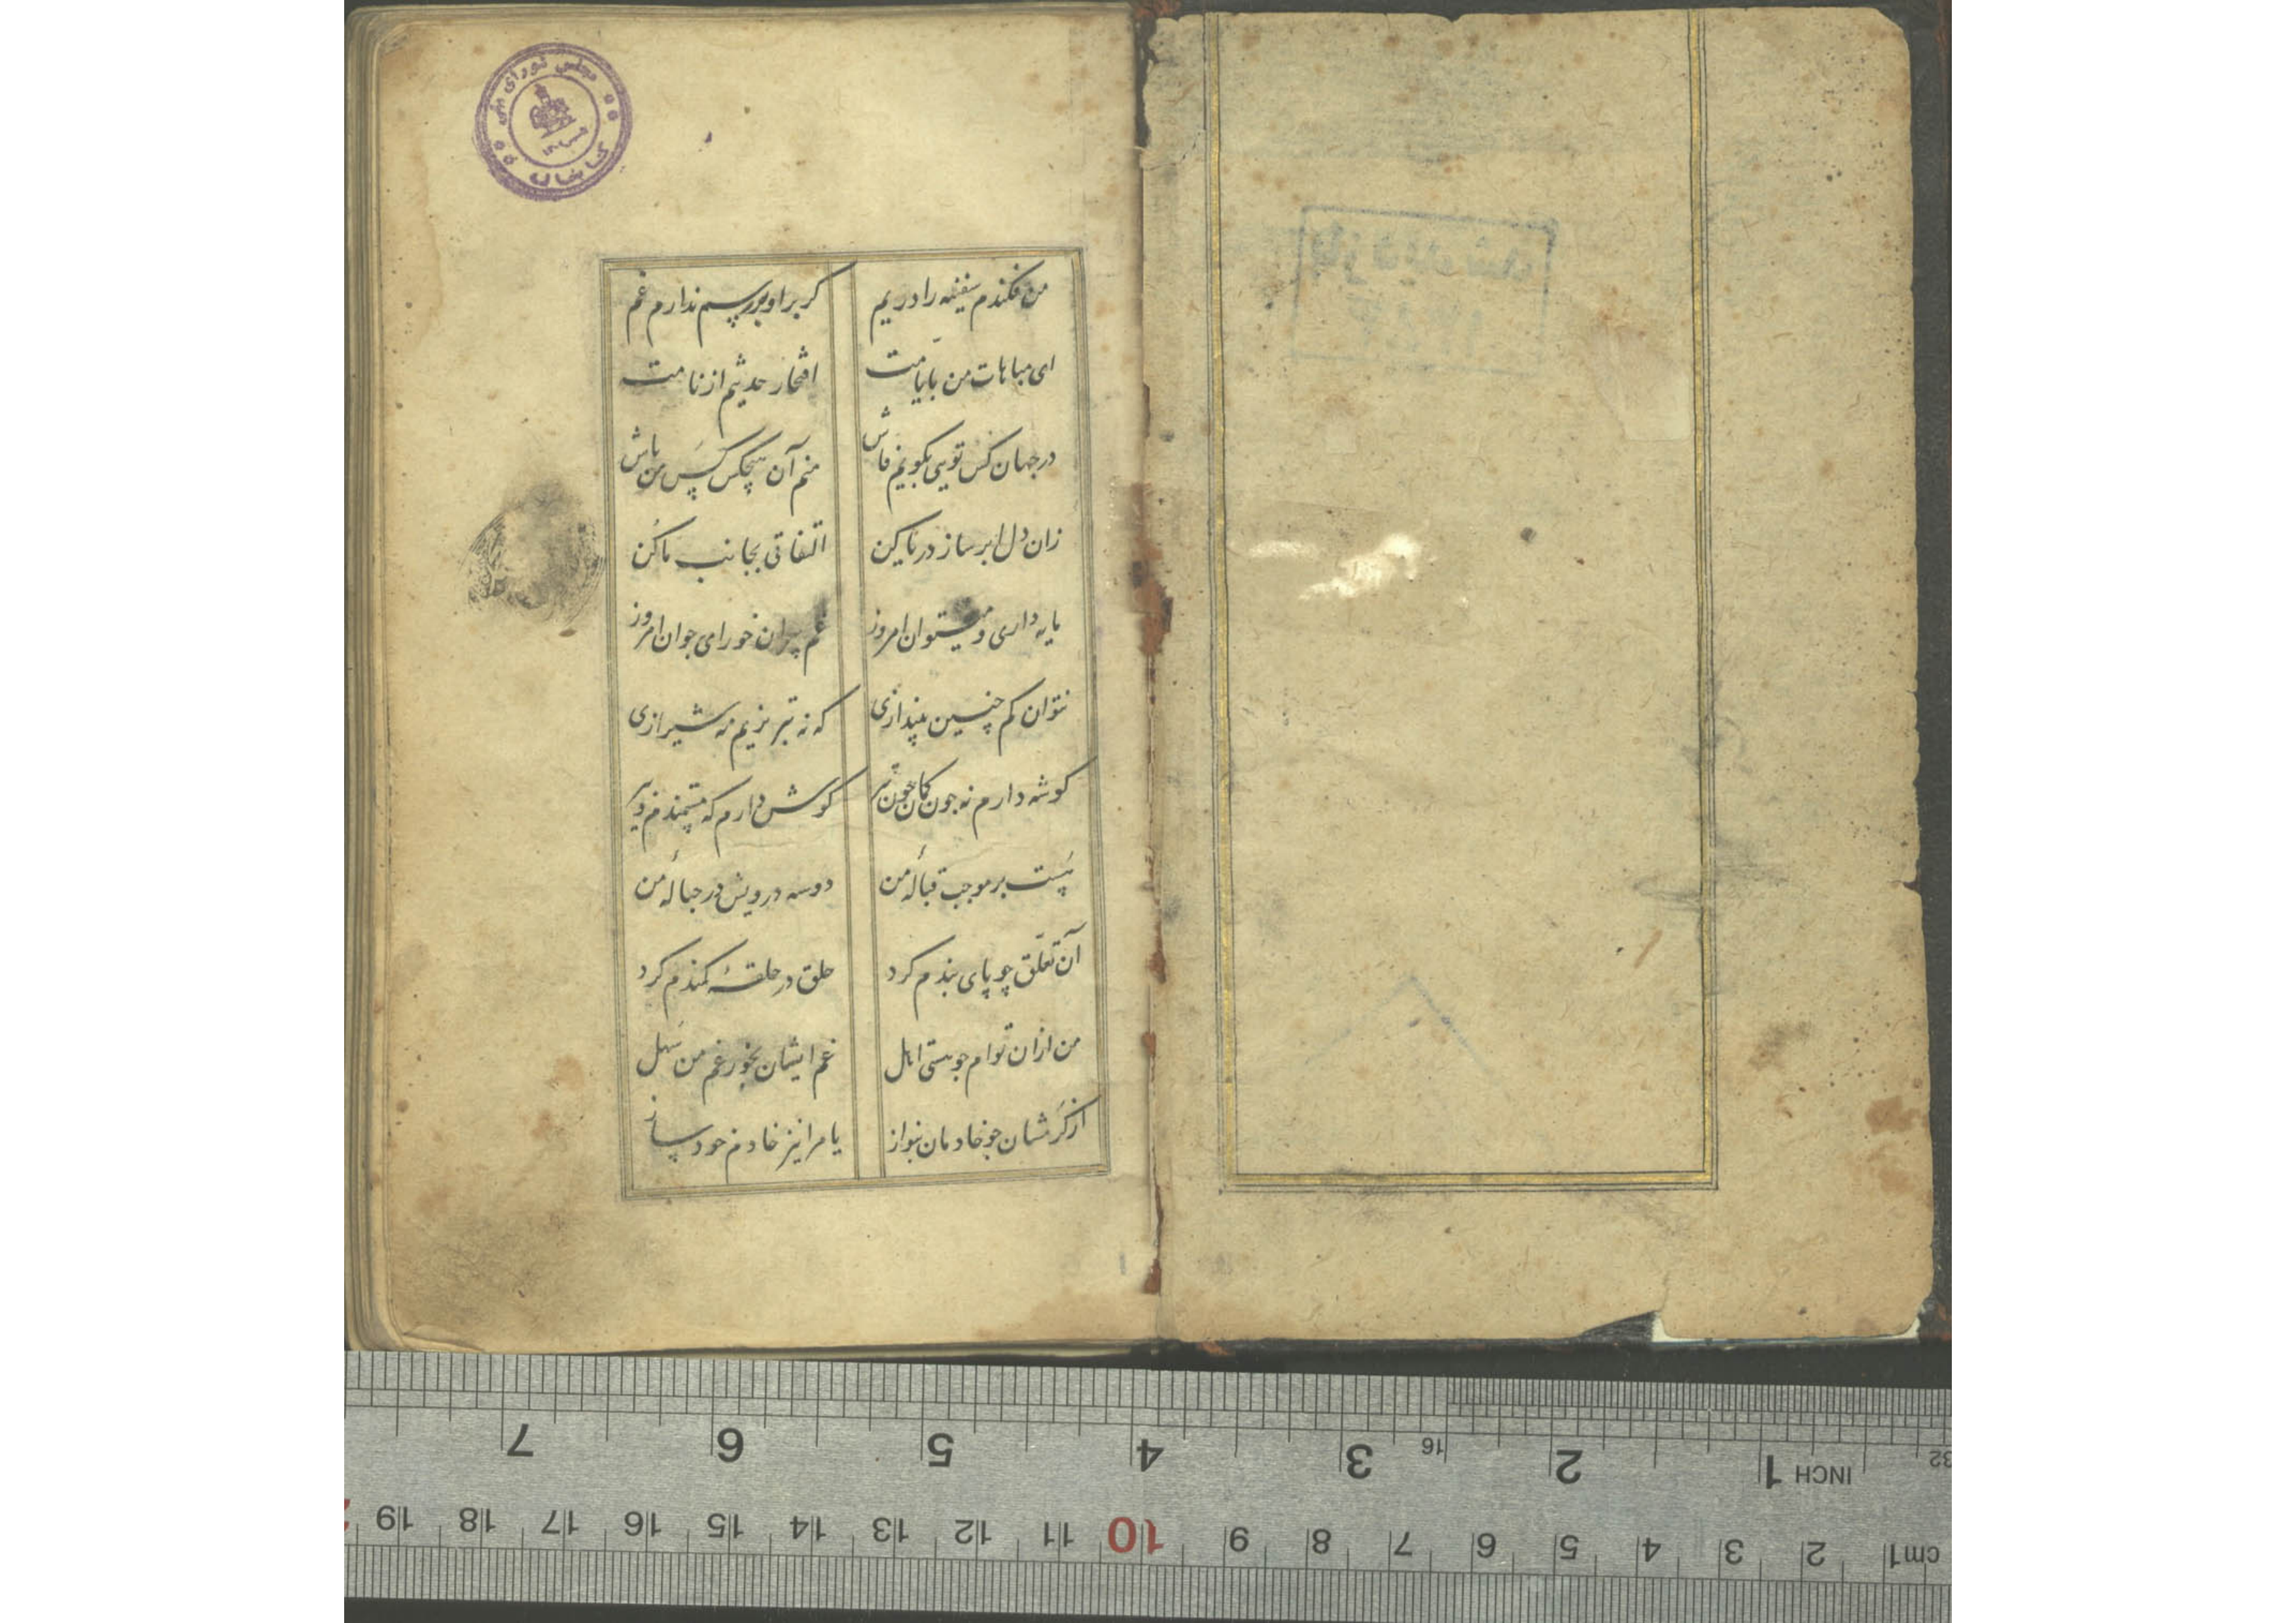 مجلس شورای ملی
کتابخانه
من فکندم سفینه را در یم گر بر او بررسم ندارم غم
ای مباهات من بایامت افتخار حدیثم از نامت
در جهان کس تویی بگویم فاش منم آن هیچکس کس من باش
زان دل ابر ساز دریا کن التفاتی بجانب ما کن
مایه داری و میتوان امروز غم پیران خور ای جوان امروز
نتوان کم چنین بیندازی که نه تبریزیم نه شیرازی
گوشه دارم نه چون کمان چون تیر گوش دارم که مستمندم و پیر
پست بر موجب قبالهٔ من دوسه درویش در حبالهٔ من
آن تعلق چو پای بندم کرد حلق در حلقهٔ کمندم کرد
من ازان توام چو هستی اهل غم ایشان بخور غم من سهل
از کرمشان چو خادمان بنواز یا مرا نیز خادم خود ساز
7 6 5 4 3 16 2 1 INCH 32
19 18 17 16 15 14 13 12 11 10 9 8 7 6 5 4 3 2 1 cm